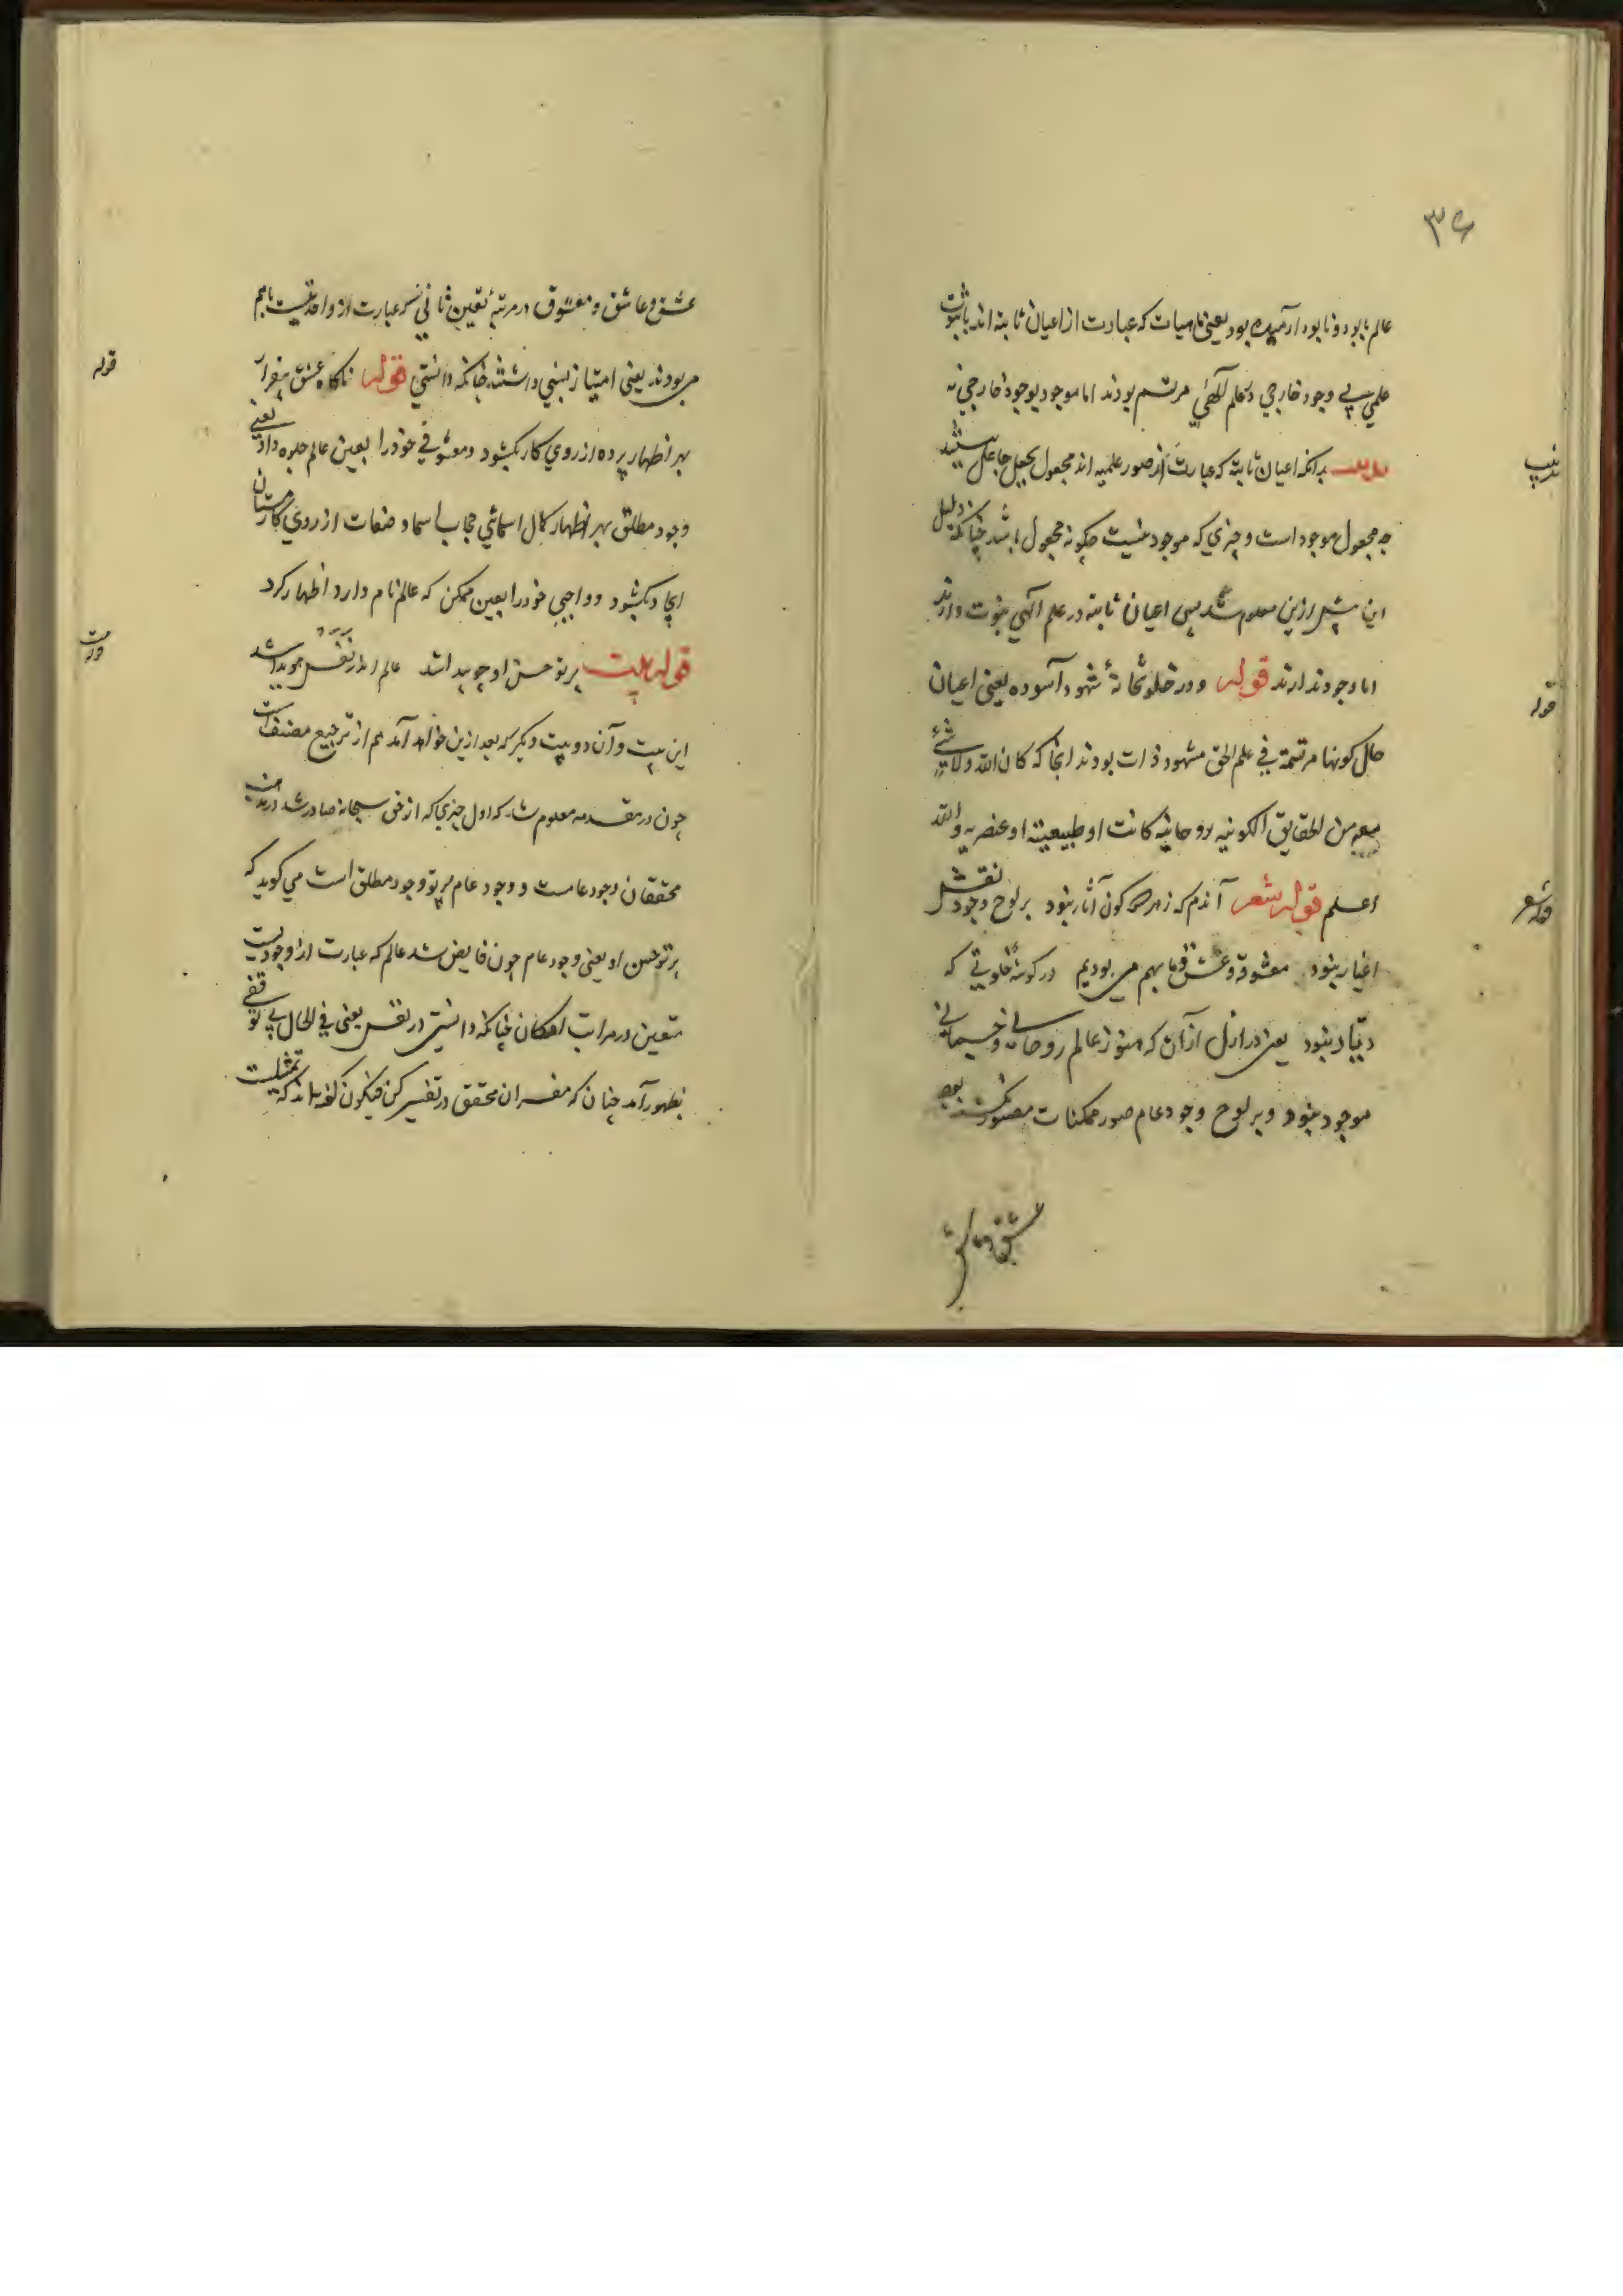 ۳۶
عالم بابود و نابود آرمیده بود یعنی ماهیات که عبارت از اعیان ثابته اند با ثبوت
علمی بی وجود خارجی در علم آلهی مرتسم بودند اما موجود بوجود خارجی نه
بدانکه اعیان ثابته که عبارت از صور علمیه اند مجعول بجعل جاعل نیستند
چه مجعول موجود است و چیزی که موجود نیست چکونه مجعول باشد چنانکه دلیل
این پیش ازین معلوم شد پس اعیان ثابته در علم الهی ثبوت دارند
اما وجود ندارند قوله و در خلوتخانهٔ شهود آسوده یعنی اعیان
حال کونها مرتسمة فی علم الحق مشهود ذات بودند انجا که کان الله ولا شیٔ
معه من الحقایق الکونیه روحانیه کانت او طبیعیة او عنصریه والله
اعلم قوله شعر آندم که ز هر دو کون آثار نبود بر لوح وجود نقش
اغیار نبود معشوقه و عشق و ما بهم می بودیم در کوشهٔ خلوتی که
دیّار نبود یعنی در ازل آزآن که هنوز عالم روحانی و جسمانی
موجود نبود و بر لوح وجود عام صور ممکنات مصور نکشته بود
عشق و عاشق
قوله
قوله شعر
عشق و عاشق و معشوق در مرتبهٔ تعین ثانی که عبارت از واحدیتست باهم
می بودند یعنی امتیاز نسبی داشتند چنانکه دانستی قوله ناکاه عشق بیقرار
بهر اظهار پرده از روی کار بکشود و معشوقی خود را بعین عالم جلوه داد یعنی
وجود مطلق بهر اظهار کمال اسمائی حجاب اسما و صفات از روی کارستان
ایجاد بکشود و واجبی خود را بعین ممکن که عالم نام دارد اظهار کرد
قوله بیت پرتو حسن او چو پیدا شد عالم اندر نفس هویدا شد
این بیت و آن دو بیت دیکر که بعد ازین خواهد آمد هم از ترجیع مصنف است
چون در مقدمه معلوم شد که اول چیزی که از حق سبحانه صادر شد
محققان وجود عامست و وجود عام پرتو وجود مطلق است می کوید که
پرتو حسن او یعنی وجود عام چون فایض شد عالم که عبارت از وجودیست
متعین در مراتب امکان چنانکه دانستی در نفس یعنی فی الحال بی توقفی
بظهور آمد چنان که مفسران محقق در تفسیر کن فیکون کفته اند که تمثلیست
قوله
قوله بیت